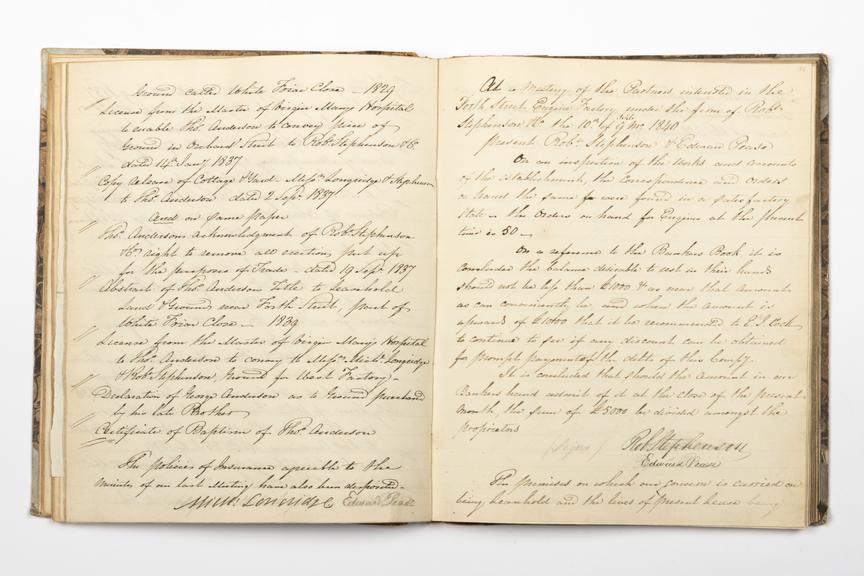 Ground called White Friar Close – 1829
License from the Master of Virgin Mary Hospital
to enable Thoˢ Anderson to convey piece of
Ground in Orchard Street to Robᵗ Stephenson & Cᵒ
dated 14ᵗʰ Janʸ 1837
Copy Release of Cottage & Yard Messʳˢ Longridge & Stephenson
to Thoˢ Anderson dated 2 Sepʳ 1837
and on same paper
Thoˢ Andersons acknowledgment of Robᵗ Stephenson
& Cᵒ right to remove all erections put up
for the purposes of Trade – dated 19 Sepʳ 1837
Abstract of Thoˢ Anderson Title to leasehold
Land & Ground near Forth Street, part of
White Friar Close – 1839
License from the Master of Virgin Mary Hospital
to Thoˢ Anderson to convey to Messʳˢ Michˡ Longridge
& Robᵗ Stephenson, Ground for West Factory –
Declaration of George Anderson as to Ground purchased
by his late Brother
Certificate of Baptism of Thoˢ Anderson
The policies of Insurance agreeable to the
Minutes of our last Meeting have also been deposited –
Michˡ Longridge Edward Pease
At a Meeting of the Partners interested in the
Forth Street Engine Factory under the firm of Robᵗ
Stephenson & Cᵒ the 10ᵗʰ of 9 Mᵒ 1840
Present Robᵗ Stephenson & Edward Pease
On an inspection of the Works and accounts
of the establishment, the Correspondence and orders
on hand the same were found in a satisfactory
state – the Orders on hand for Engines at the present
time is 50 –
On a reference to the Bankers Book it is
concluded the balance desirable to rest in their hands
should not be less than £1000 & as near that amount
as can conveniently be and when the amount is
upwards of £1000 that it be recommended to E J Cook
to continue to see if any discount can be obtained
for prompt payment of the debts of this Compʸ
It is concluded that should the amount in our
Bankers hand admit of it at the close of the present
month, the sum of £5000 be divided amongst the
propietors
(Signed) Robᵗ Stephenson
Edward Pease
The premises on which our concern is carried on
being leasehold and the lives of present lease being